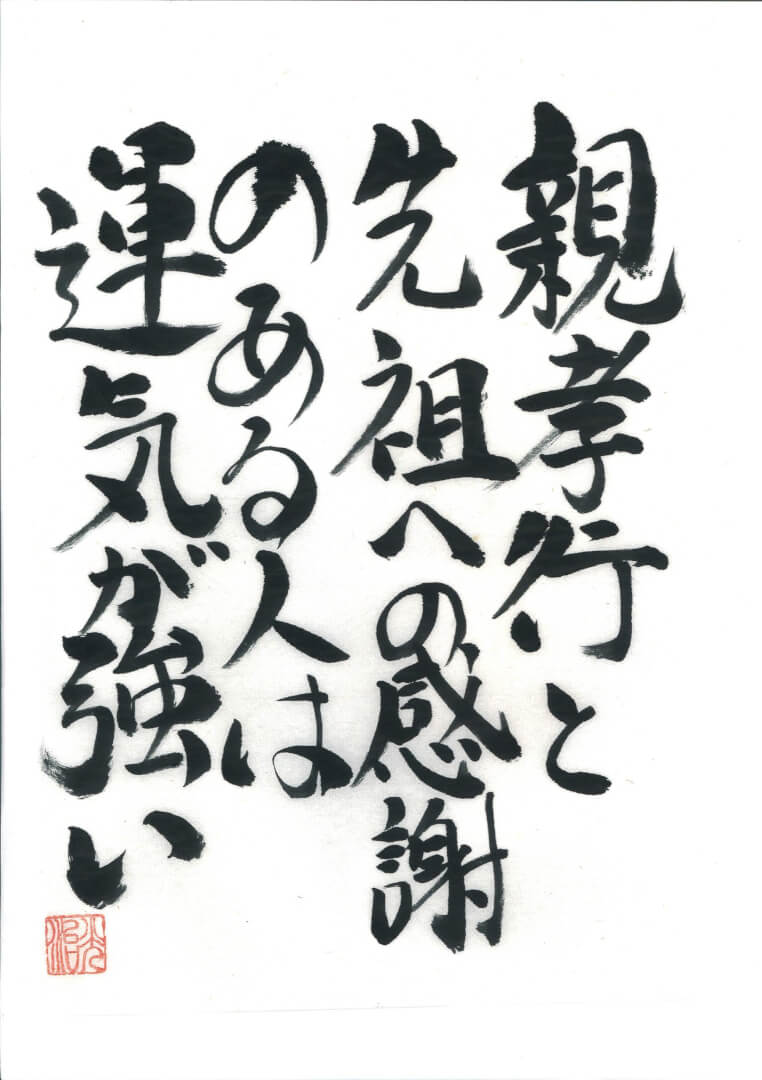 親孝行と
先祖への感謝
のある人は
運気が強い